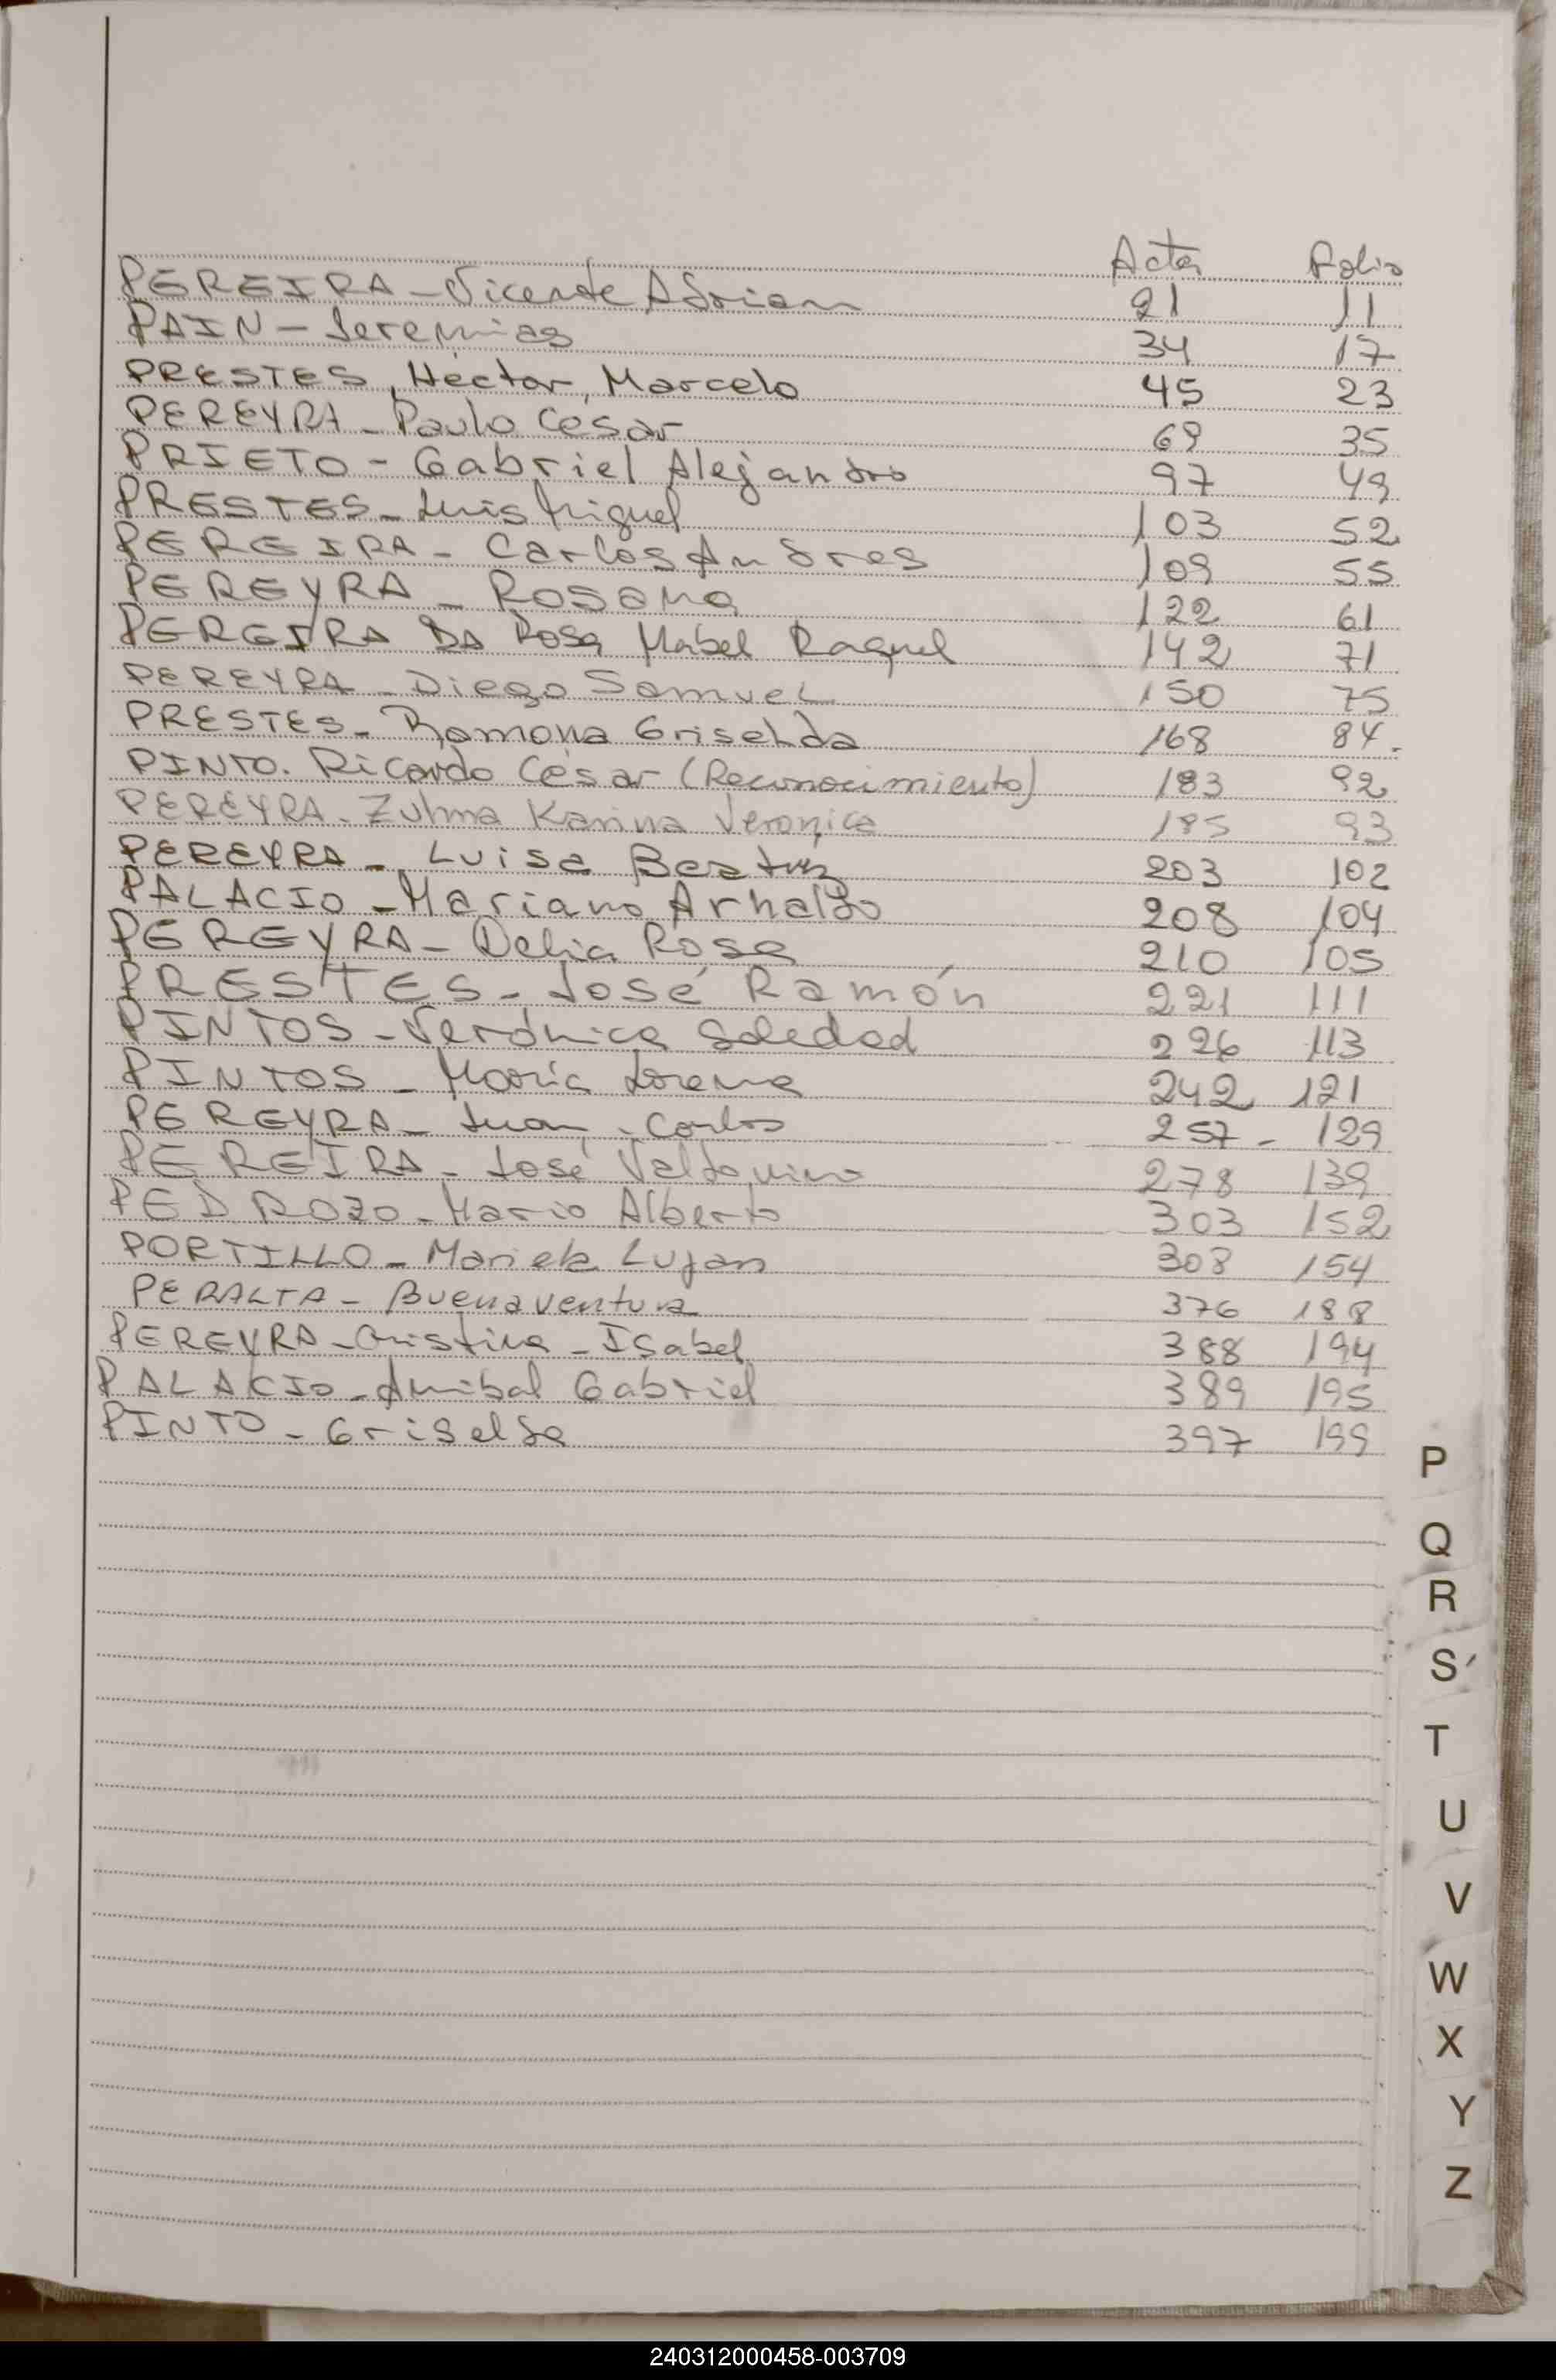 Acta Folio
PEREIRA - Vicente Adrian 21 11
PAIN - Jeremias 34 17
PRESTES, Hector, Marcelo 45 23
PEREYRA - Paulo César 69 35
PRIETO - Gabriel Alejandro 97 49
PRESTES - Luis Miguel 103 52
PEREIRA - Carlos Andres 109 55
PEREYRA - Rosana 122 61
PEREIRA DA Rosa Mabel Raquel 142 71
PEREYRA - Diego Samuel 150 75
PRESTES - Ramona Griselda 168 84.
PINTO. Ricardo César (Reconocimiento) 183 92
PEREYRA. Zulma Karina Veronica 185 93
PEREYRA - Luisa Beatriz 203 102
PALACIO - Mariano Arnaldo 208 104
PEREYRA - Delia Rosa 210 105
PRESTES - José Ramón 221 111
PINTOS - Verónica Soledad 226 113
PINTOS - María Lorena 242 121
PEREYRA - Juan Carlos 257 - 129
PEREIRA - José Valdovino 278 139
PEDROZO - Mario Alberto 303 152
PORTILLO - Mariela Lujan 308 154
PERALTA - Buenaventura 376 188
PEREYRA - Cristina - Isabel 388 194
PALACIO - Anibal Gabriel 389 195
PINTO - Griselda 397 199
P
Q
R
S
T
U
V
W
X
Y
Z
240312000458-003709